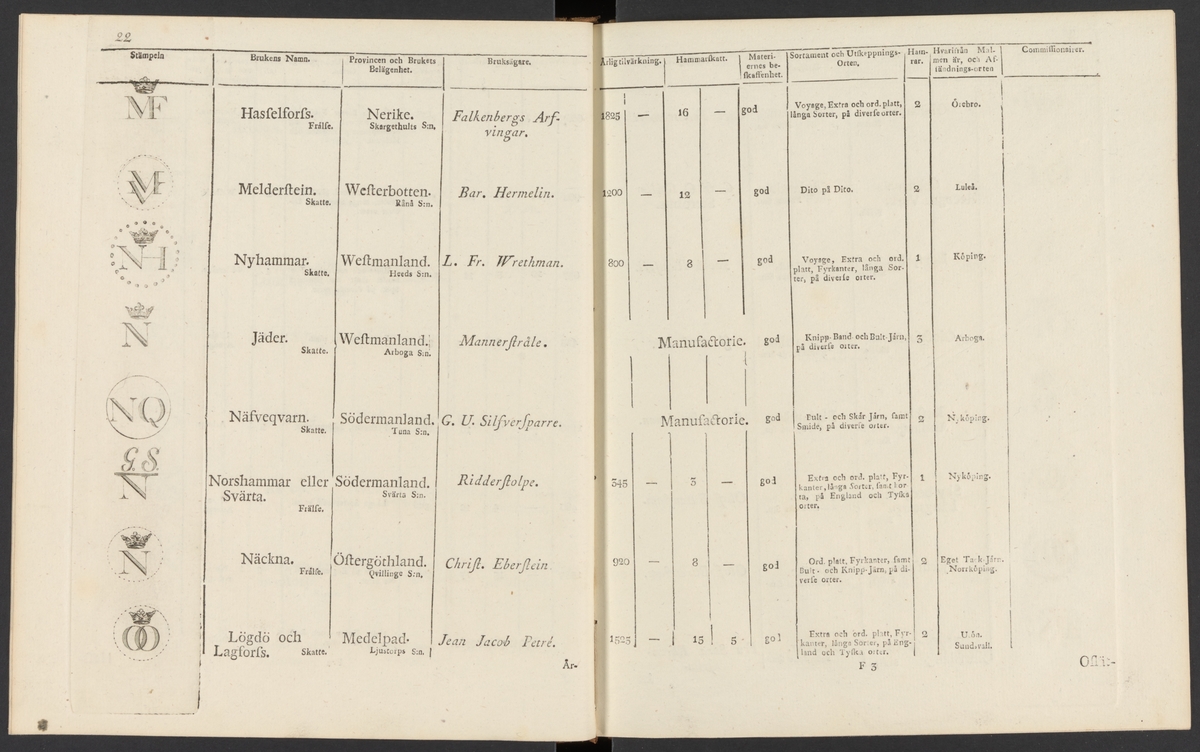 22
Stämpeln Brukens Namn. Provincen och Brukets Belägenhet. Bruksägare. Årlig tilvärkning. Hammarſkatt. Materiernes beſkaffenhet. Sortament och Utſkeppnings-Orten. Hamrar. Hvarifrån Malmen är, och Afſändnings-orten Commiſſionairer.
MF Haſſelforſs. Nerike. Falkenbergs Arf- 1825 — 16 — god Voyage, Extra och ord. platt, 2 Örebro.
Frälſe. Skagerhults S:n. vingar. långa Sorter, på diverſe orter.
Melderſtein. Weſterbotten. Bar. Hermelin. 1200 — 12 — god Dito på Dito. 2 Luleå.
Skatte. Rånå S:n.
NH Nyhammar. Weſtmanland. L. Fr. Wrethman. 800 — 8 — god Voyage, Extra och ord. 1 Köping.
Skatte. Heeds S:n. platt, Fyrkanter, långa Sor-
ter, på diverſe orter.
N Jäder. Weſtmanland. Mannerſtråle. Manufactorie. god Knipp-Band och Bult-Järn, 3 Arboga.
Skatte. Arboga S:n. på diverſe orter.
NQ Näfveqvarn. Södermanland. G. U. Silfverſparre. Manufactorie. god Bult- och Skär Järn, ſamt 2 Nyköping.
Skatte. Tuna S:n. Smide, på diverſe orter.
G.S.
N Norshammar eller Södermanland. Ridderſtolpe. 345 — 3 — god Extra och ord. platt, Fyr- 1 Nyköping.
Svärta. Svärta S:n. kanter, långa Sorter, ſamt kor-
Frälſe. ta, på England och Tyſka
orter.
N Näckna. Öſtergöthland. Chriſt. Eberſtein 920 — 8 — god Ord. platt, Fyrkanter, ſamt 2 Eget Tack-Järn.
Frälſe. Qvillinge S:n. Bult- och Knipp-Järn, på di- Norrköping.
verſe orter.
Lögdö och Medelpad. Jean Jacob Petré. 1525 — 15 5 god Extra och ord. platt, Fyr- 2 Utöa.
Lagforſs. Skatte. Ljustorps S:n. kanter, långa Sorter, på Eng- Sundsvall.
land och Tyſka orter.
År- F 3